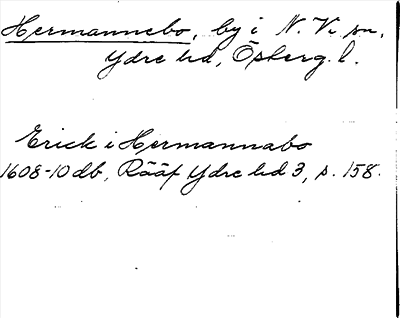 Hermannebo, by i N. Vi sn,
Ydre hd, Östergl.
Erick i Hermannabo
1608-10 db, Rääf Ydre hd 3, s. 158.